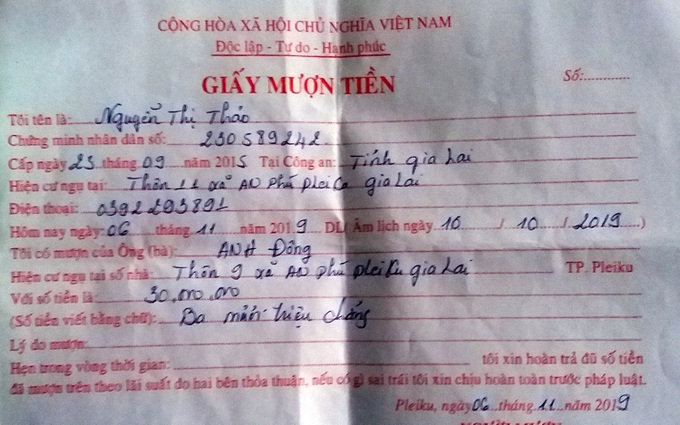 CỘNG HÒA XÃ HỘI CHỦ NGHĨA VIỆT NAM
Độc lập - Tự do - Hạnh phúc
GIẤY MƯỢN TIỀN
Số:............
Tôi tên là: Nguyễn Thị Thảo
Chứng minh nhân dân số: 230589242
Cấp ngày 25 tháng 09 năm 2015 Tại Công an: Tỉnh gia Lai
Hiện cư ngụ tại: Thôn 11 xã AN phú pleiCu gia Lai
Điện thoại: 0392293891
Hôm nay ngày: 06 tháng 11 năm 2019 DL/ Âm lịch ngày 10 / 10 / 2019)
Tôi có mượn của Ông (bà): ANH Đông
Hiện cư ngụ tại số nhà: Thôn 9 xã AN phú pleiKu gia Lai TP. Pleiku
Với số tiền là: 30.000.000
(Số tiền viết bằng chữ): Ba mươi triệu
Lý do mượn:
Hẹn trong vòng thời gian: tôi xin hoàn trả đủ số tiền
đã mượn trên theo lãi suất do hai bên thỏa thuận, nếu có gì sai trái tôi xin chịu hoàn toàn trước pháp luật.
Pleiku, ngày 06 tháng 11 năm 2019